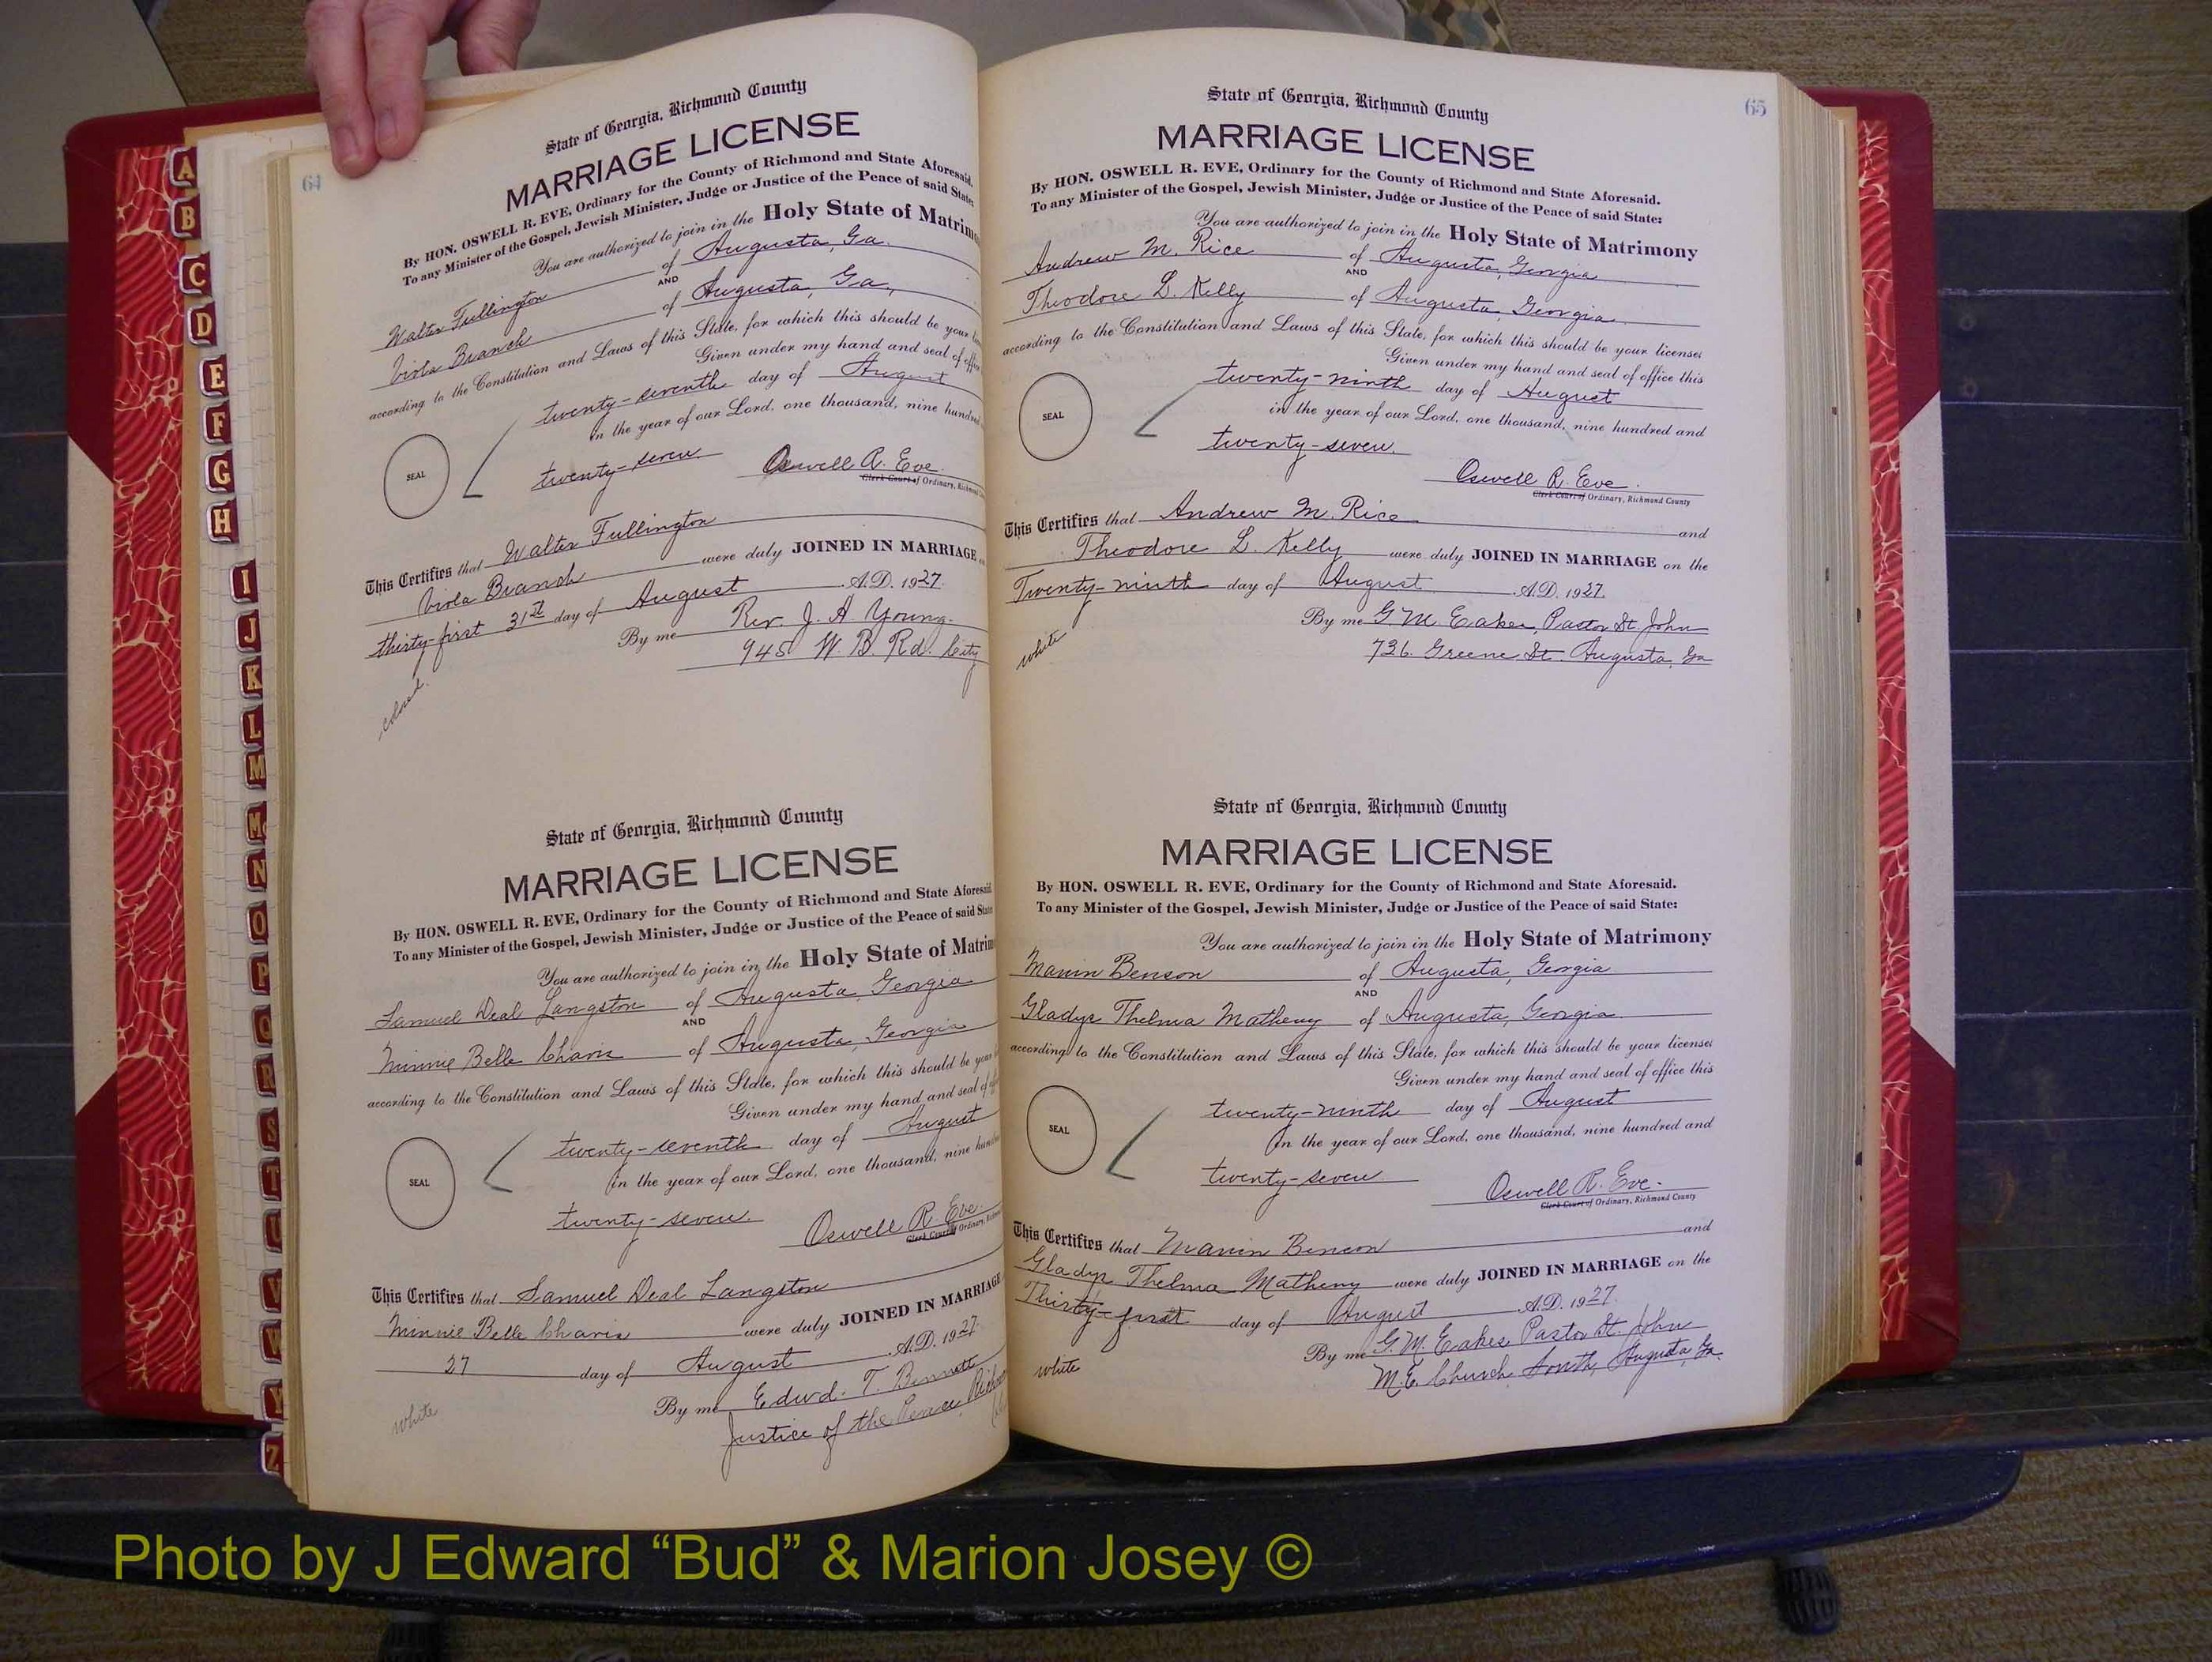 64
State of Georgia, Richmond County
MARRIAGE LICENSE
By HON. OSWELL R. EVE, Ordinary for the County of Richmond and State Aforesaid.
To any Minister of the Gospel, Jewish Minister, Judge or Justice of the Peace of said State
You are authorized to join in the Holy State of Matrim
Walter Fullington of Augusta, Ga.
AND
Viola Branch of Augusta, Ga.,
according to the Constitution and Laws of this State, for which this should be your
Given under my hand and seal of
twenty-seventh day of August
in the year of our Lord, one thousand, nine hundred
SEAL
twenty-seven. Oswell R. Eve.
Clerk Court of Ordinary, Richmond
This Certifies that Walter Fullington
Viola Branch were duly JOINED IN MARRIAGE
thirty-first 31st day of August A.D. 1927.
By me Rev. J. A Young.
945 W. B. Rd. City
colored.
State of Georgia, Richmond County
MARRIAGE LICENSE
By HON. OSWELL R. EVE, Ordinary for the County of Richmond and State Aforesaid
To any Minister of the Gospel, Jewish Minister, Judge or Justice of the Peace of said State
You are authorized to join in the Holy State of Matrim
Samuel Deal Langston of Augusta, Georgia
AND
Minnie Belle of Augusta, Georgia
according to the Constitution and Laws of this State, for which this should be your
Given under my hand and seal of
twenty-seventh day of August
in the year of our Lord, one thousand, nine
SEAL
twenty-seven. Oswell R. Eve.
Clerk Court of Ordinary,
This Certifies that Samuel Deal Langston
Minnie Belle were duly JOINED IN MARRIAGE
27 day of August A.D. 1927.
By me Edwd. T. Bennett
Justice of the Peace
white
65
State of Georgia, Richmond County
MARRIAGE LICENSE
By HON. OSWELL R. EVE, Ordinary for the County of Richmond and State Aforesaid.
To any Minister of the Gospel, Jewish Minister, Judge or Justice of the Peace of said State:
You are authorized to join in the Holy State of Matrimony
Andrew M. Rice of Augusta, Georgia
AND
Theodore L. Kelly of Augusta, Georgia.
according to the Constitution and Laws of this State, for which this should be your licenses
Given under my hand and seal of office this
twenty-ninth day of August
in the year of our Lord, one thousand, nine hundred and
SEAL
twenty-seven.
Oswell R. Eve.
Clerk Court of Ordinary, Richmond County
This Certifies that Andrew M. Rice and
Theodore L. Kelly were duly JOINED IN MARRIAGE on the
Twenty-ninth day of August A.D. 1927.
By me G. M. Eakes, Pastor St. John
736 Greene St. Augusta, Ga
white
State of Georgia, Richmond County
MARRIAGE LICENSE
By HON. OSWELL R. EVE, Ordinary for the County of Richmond and State Aforesaid.
To any Minister of the Gospel, Jewish Minister, Judge or Justice of the Peace of said State:
You are authorized to join in the Holy State of Matrimony
Benson of Augusta, Georgia
AND
Gladys Thelma Matheny of Augusta, Georgia.
according to the Constitution and Laws of this State, for which this should be your licenses
Given under my hand and seal of office this
twenty-ninth day of August
in the year of our Lord, one thousand, nine hundred and
SEAL
twenty-seven
Oswell R. Eve.
Clerk Court of Ordinary, Richmond County
This Certifies that Benson and
Gladys Thelma Matheny were duly JOINED IN MARRIAGE on the
Thirty-first day of August A.D. 1927.
By me G. M. Eakes Pastor St. John
M.E. Church South, Augusta, Ga.
white
A
B
C
D
E
F
G
H
I
J
K
L
M
Mc
N
O
P
Q
R
S
T
U
V
W
Y
Z
Photo by J Edward “Bud” & Marion Josey ©